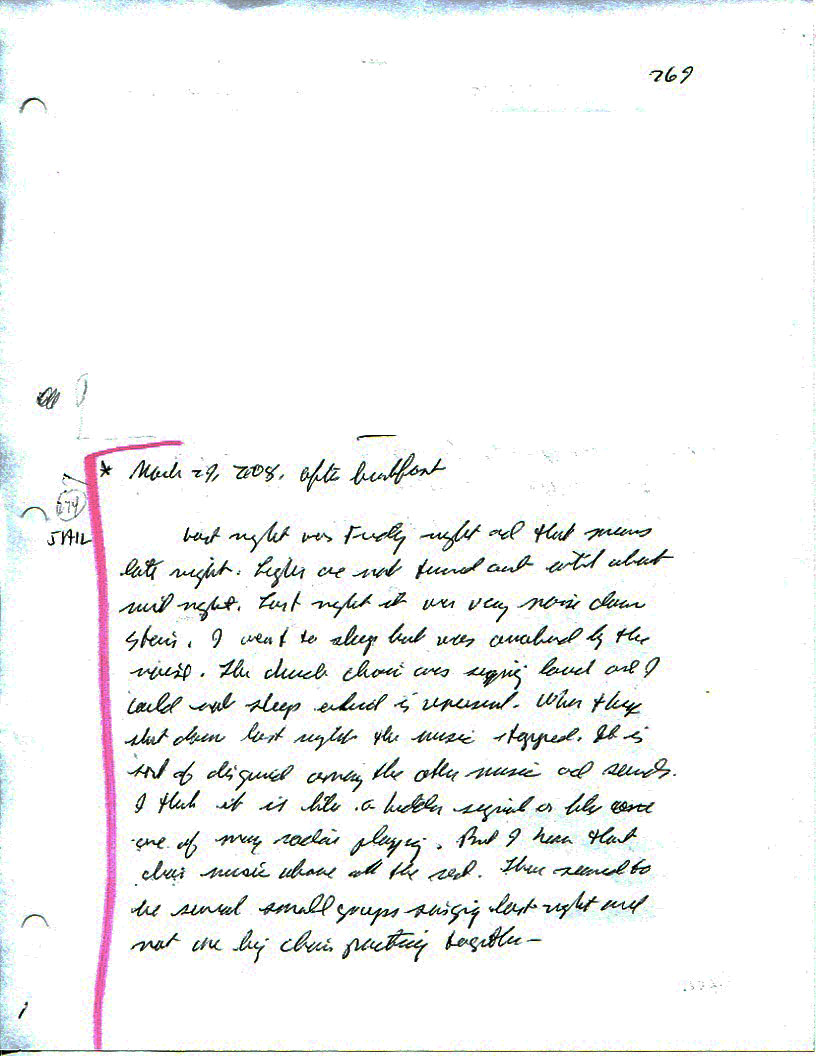 269
* March 29, 2008. after breakfast
274
JAIL
Last night was Friday night and that means
late night. Lights are not turned out until about
mid night. Last night it was very noise down
stairs. I went to sleep but was awakened by the
noise. The church choir was singing loud and I
could not sleep is unpleasant. When they
shut down last night the music stopped. It is
sort of disguised among the other music and sounds.
I think it is like a hidden signal or like
one of many radios playing. But I hear that
choir music above all the rest. There seemed to
be several small groups singing last night and
not one big choir practicing together –